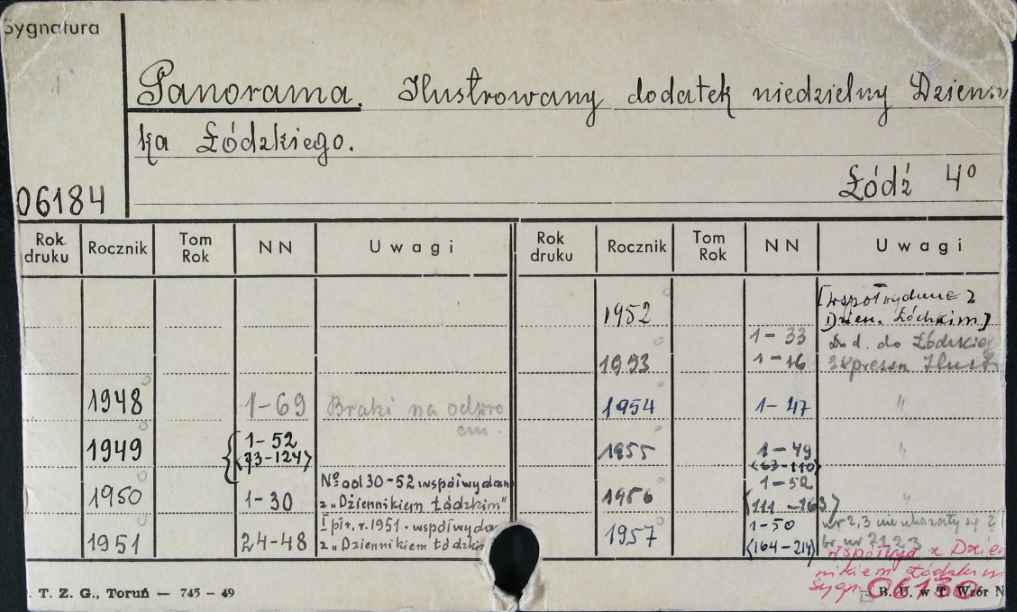 Sygnatura
Panorama. Ilustrowany dodatek niedzielny Dzienni
ka Łódzkiego.
Łódź 4°
06184
Rok druku Rocznik Tom Rok NN Uwagi Rok druku Rocznik Tom Rok NN Uwagi
1952 [współwydane z
Dzien. Łódzkim]
1-33 Dod. do Łódzkieg
1953 1-16 Expressu Ilust
1948 1-69 Braki na odwro
cie.
1954 1-47 "
1949 1-52
<73-124>
1955 1-49 "
<63-110>
1950 1-30 N° od 30-52 współwydan
z „Dziennikiem Łódzkim"
1956 1-52 "
<111-163>
1951 24-48 I pół. r. 1951. współwyda
z „Dziennikiem Łódzki
1957 1-50 nr 2,3 nie ukazały się
<164-214> br. nr
współwyd z Dzien
nikiem Łódzkim
sygn.
. T. Z. G., Toruń — 745 — 49
B. U. w T. Wzór N